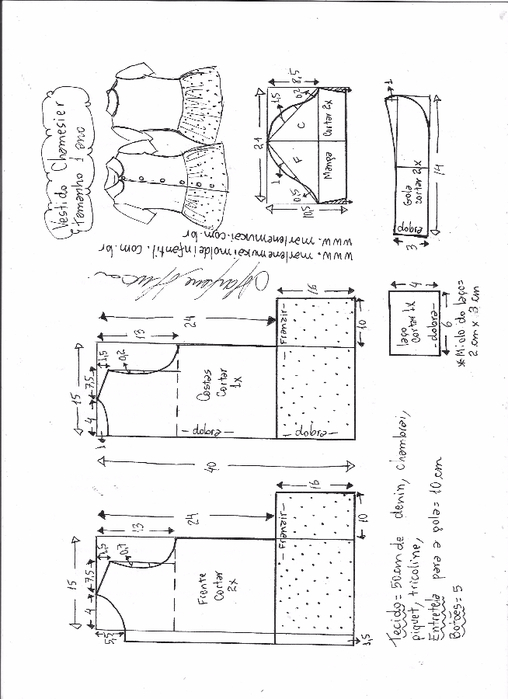 Vestido Chamesier
tamanho 1 ano
www.marlenemukaimoldeinfantil.com.br
www.marlenemukai.com.br
21
8,5
1,5
0,2
1
0,5
10,5
F
C
Manga
Cortar 2x
1
Gola
cortar 2x
dobra
3
14
15
4
7,5
1,5
1
0,2
13
24
Costas
Cortar
1x
- dobra -
- dobra -
- Franzir -
16
10
40
laço
Cortar 1x
- dobra -
4
6
*Miolo do laço=
2 cm x 3 cm
15
4
7,5
1,5
5,5
0,7
13
24
Frente
Cortar
2x
- Franzir -
16
10
1,5
Tecido= 50cm de denin, chambrai,
piquet, tricoline,
Entretela para a gola= 10 cm
Botões= 5